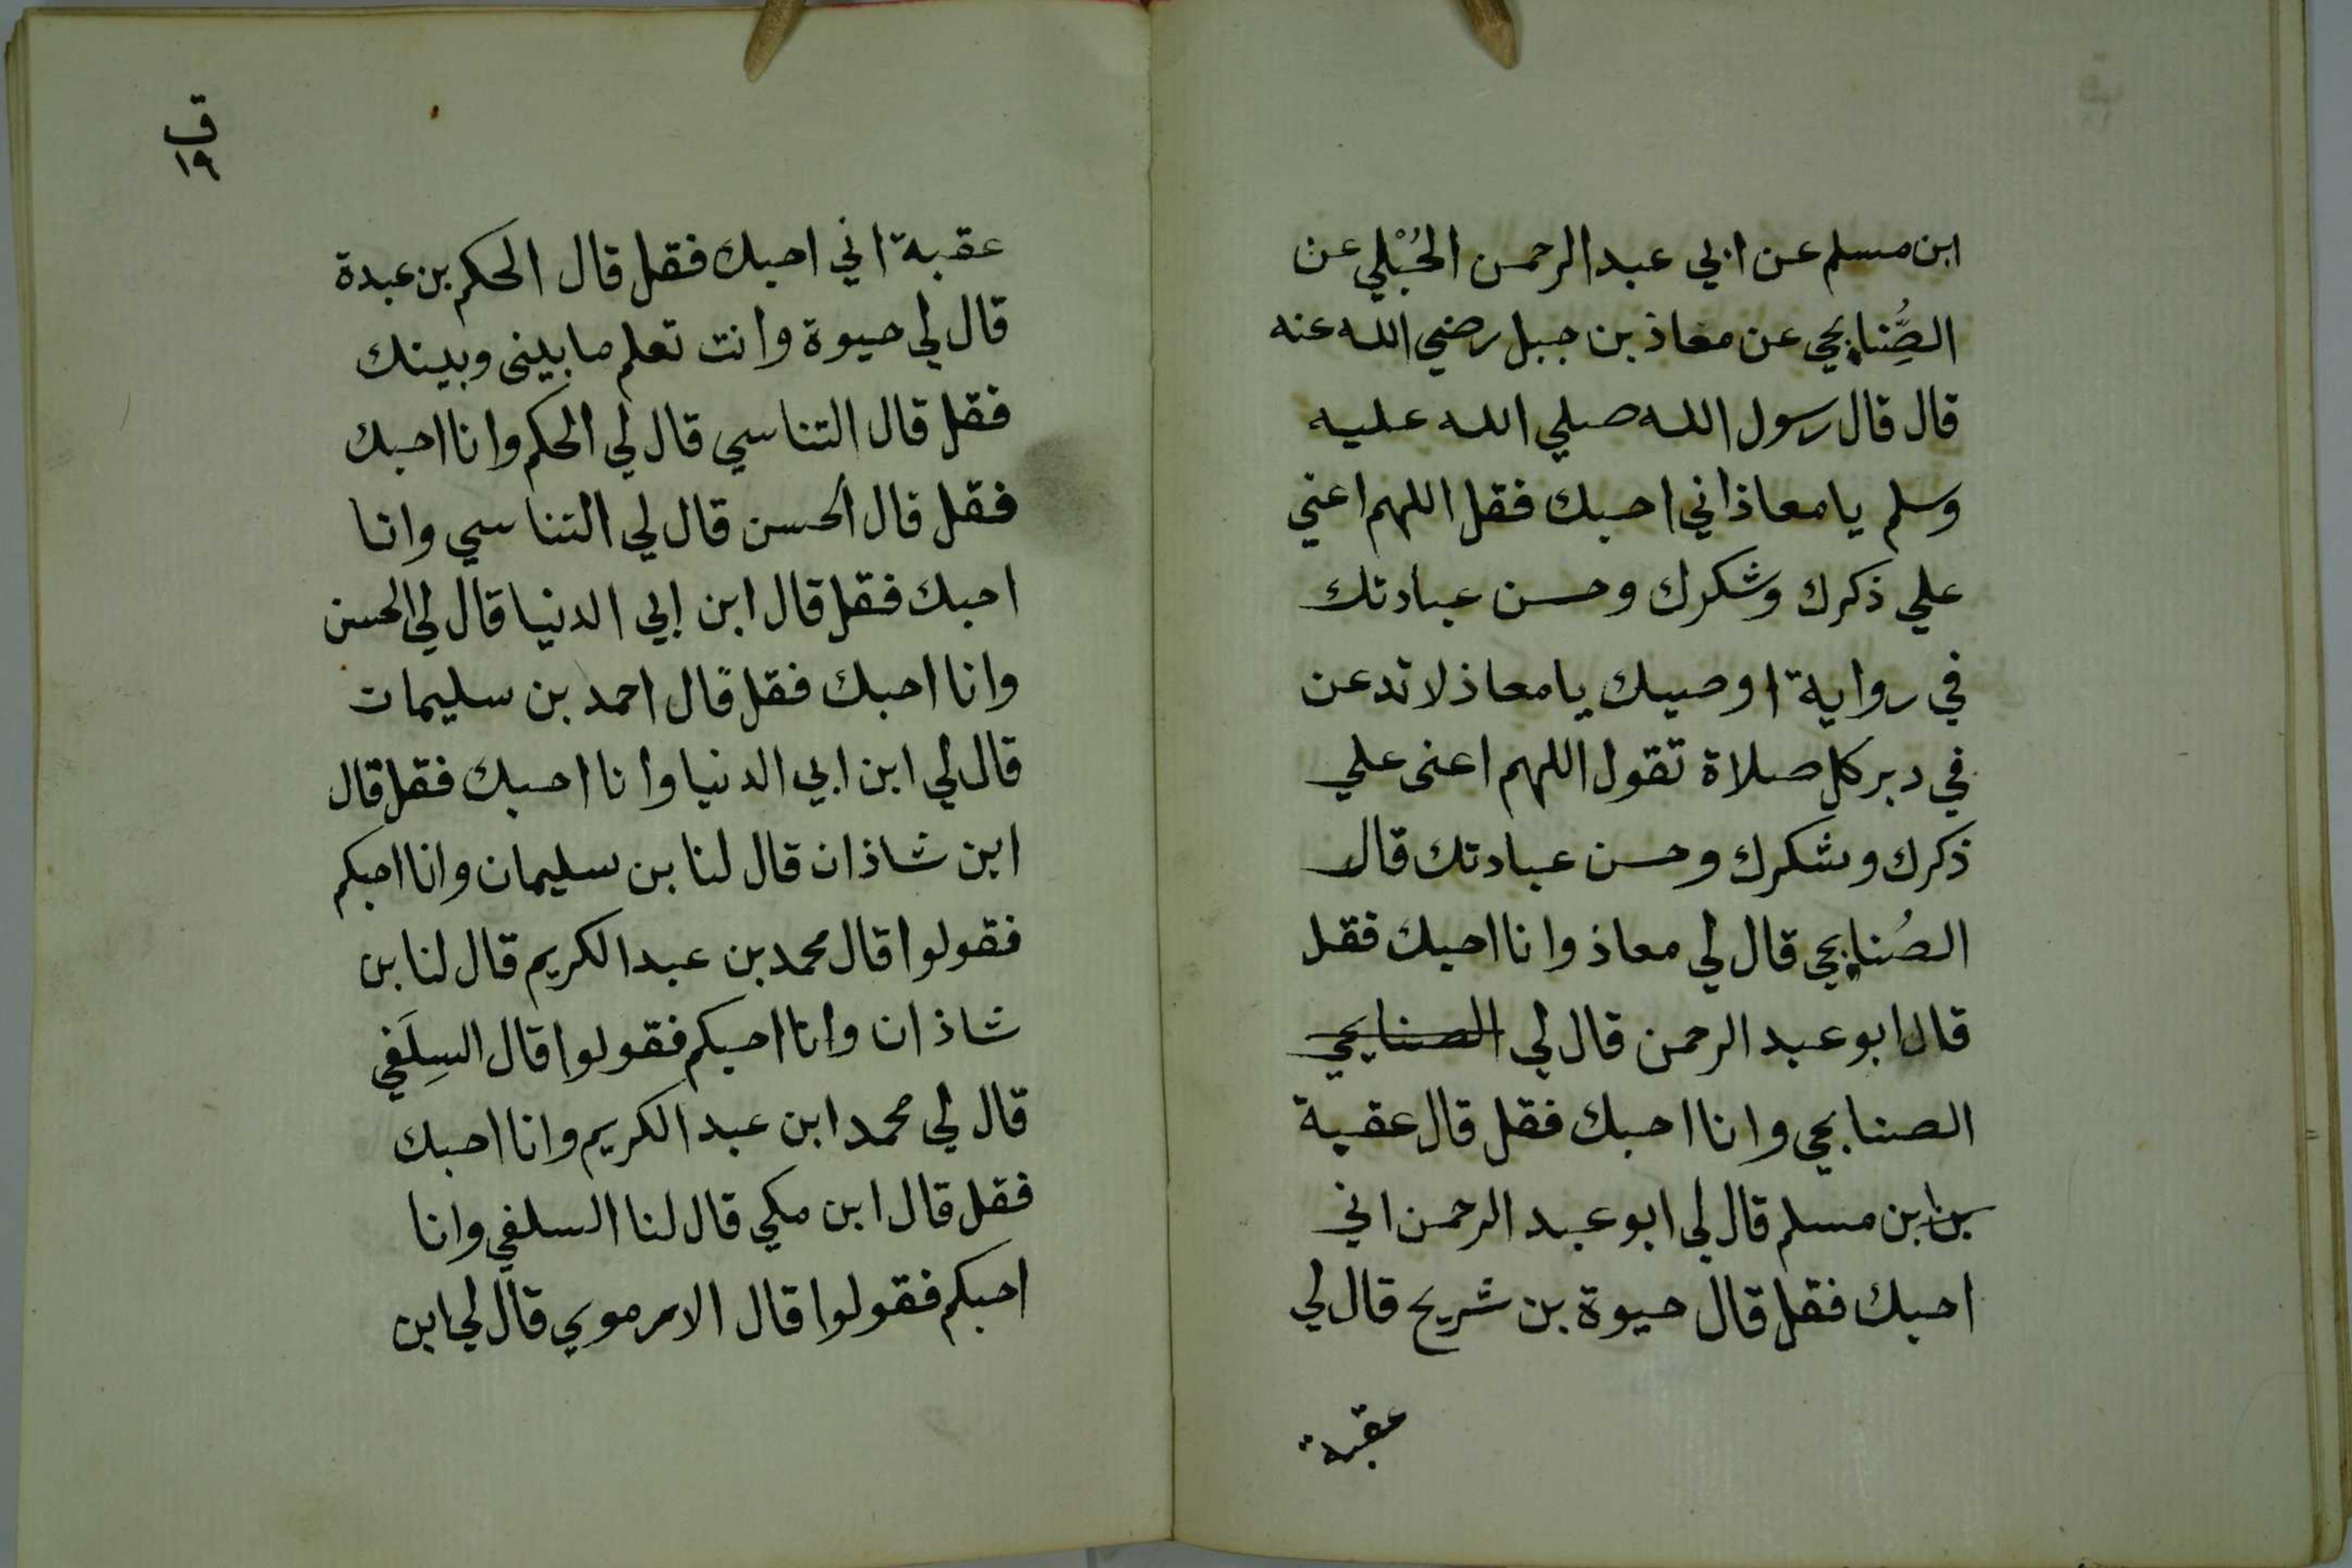 ابن مسلم عن ابي عبد الرحمن الحُبْلي عن
الصُّنابِحي عن معاذ بن جبل رضي الله عنه
قال قال رسول الله صلي الله عليه
وسلم يا معاذ اني احبك فقل اللهم اعني
علي ذكرك وشكرك وحسن عبادتك
في رواية اوصيك يا معاذ لا تدعن
في دبر كل صلاة تقول اللهم اعنى علي
ذكرك وشكرك وحسن عبادتك قال
الصُنابحي قال لي معاذ وانا احبك فقل
قال ابو عبد الرحمن قال لي الصنابحي
الصنابحي وانا احبك فقل قال عقبة
بن ابن مسلم قال لي ابو عبد الرحمن اني
احبك فقل قال حيوة بن شريح قال لي
عقبة
ق
١٩
عقبة اني احبك فقل قال الحكم بن عبدة
قال لي حيوة وانت تعلم ما بينى وبينك
فقل قال التناسي قال لي الحكم وانا احبك
فقل قال الحسن قال لي التناسي وانا
احبك فقل قال ابن ابي الدنيا قال لي الحسن
وانا احبك فقل قال احمد بن سليمان
قال لي ابن ابي الدنيا وانا احبك فقل قال
ابن شاذان قال لنا بن سليمان وانا احبكم
فقولوا قال محمد بن عبد الكريم قال لنا بن
شاذان وانا احبكم فقولوا قال السِلَفي
قال لي محمد ابن عبد الكريم وانا احبك
فقل قال ابن مكي قال لنا السلفي وانا
احبكم فقولوا قال الارموي قال لي ابن